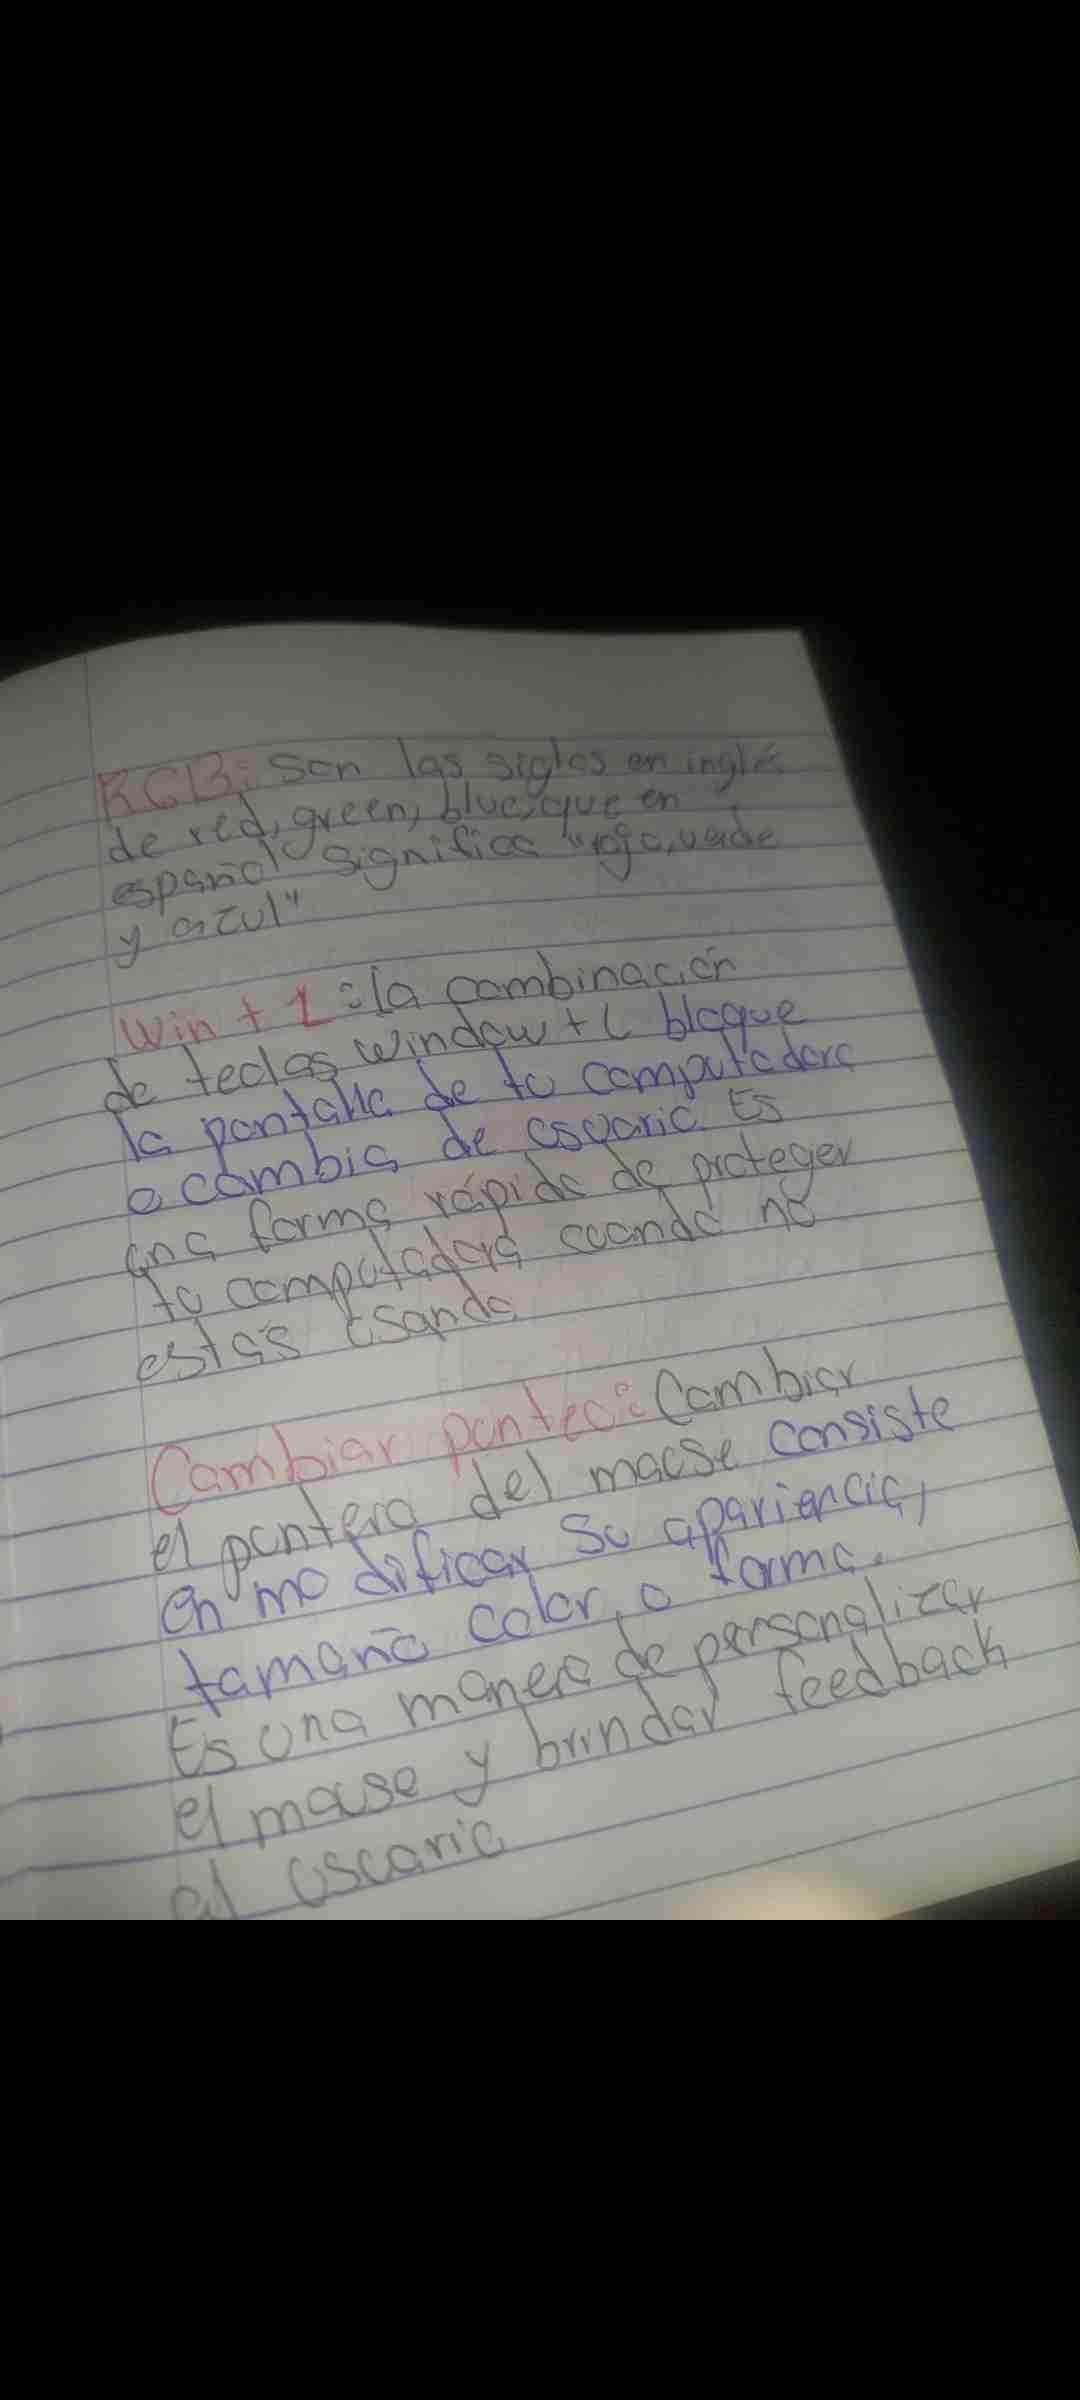 RGB: Son las siglas en inglés
de red, green, blue, que en
español significa "rojo, verde
y azul"
Win + L: la combinación
de teclas window + L bloque
la pantalla de tu computadora
o cambia de usuario. Es
una forma rápida de proteger
tu computadora cuando no
estas usando
Cambiar punteo: Cambiar
el puntero del mouse consiste
en modificar su apariencia,
tamaño color, o forma.
Es una manera de personalizar
el mouse y brindar feedback
al usuario